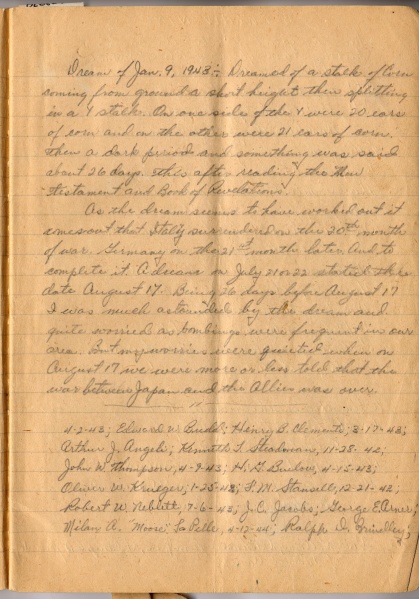 Dream of Jan. 9, 1943:- Dreamed of a stalk of Corn
coming from ground a short height then splitting
in a Y stalk. On one side of the Y were 20 ears
of corn and on the other were 21 ears of corn.
then a dark period and something was said
about 26 days. this after reading the New
Testament and Book of Revelations.
As the dream seems to have worked out it
comes out that Italy surrendered on the 20th month
of war. Germany on the 21st month later and to
complete it. A dream on July 21 or 22 stated the
date August 17. Being 26 days before August 17
I was much astounded by the dream and
quite worried as bombings were frequent in our
area. But my worries were quieted when on
August 17 we were more or less told that the
war between Japan and the Allies was over.
4-2-43; Edward V. ; Henry B. Clements; 3-17-43;
Arthur J. Angeli; Kenneth T. Steadman, 11-28-42,
John W. Thompson, 4-9-43; H. G. , 4-15-43;
Oliver W. Krueger; 1-25-43; F. M. Stansell, 12-21-42;
Robert W. Neblett, 7-6-43; J. C. Jacobs; George E. Arner;
Milan A. "Moose" La Pelle, 4-12-44; Ralph D. ;